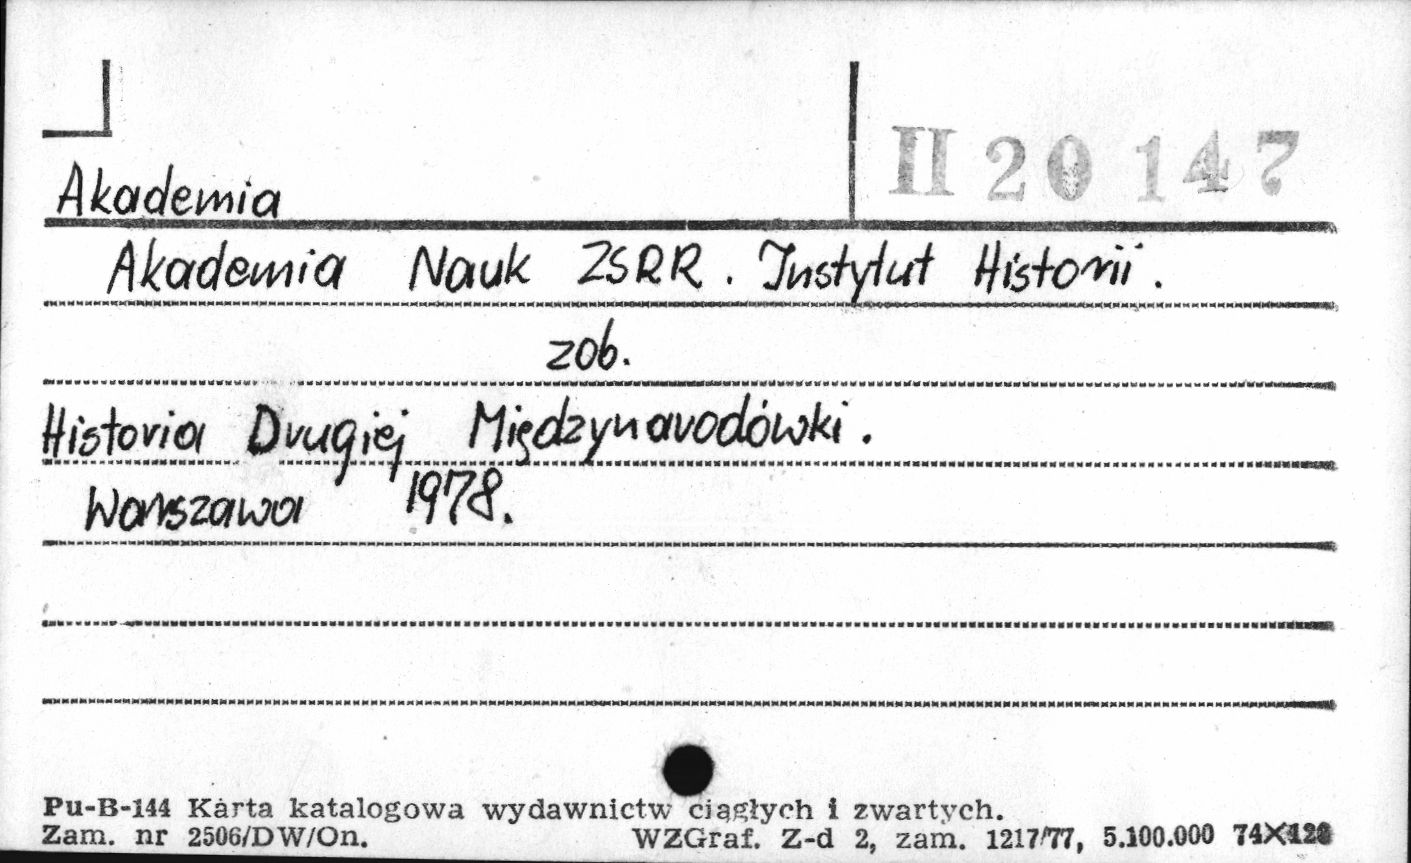 II 20 147
Akademia
Akademia Nauk ZSRR. Instytut Historii.
zob.
Historia Drugiej Międzynarodówki.
Warszawa 1978.
Pu-B-144 Karta katalogowa wydawnictw ciągłych i zwartych.
Zam. nr 2506/DW/On. WZGraf. Z-d 2, zam. 1217/77, 5.100.000